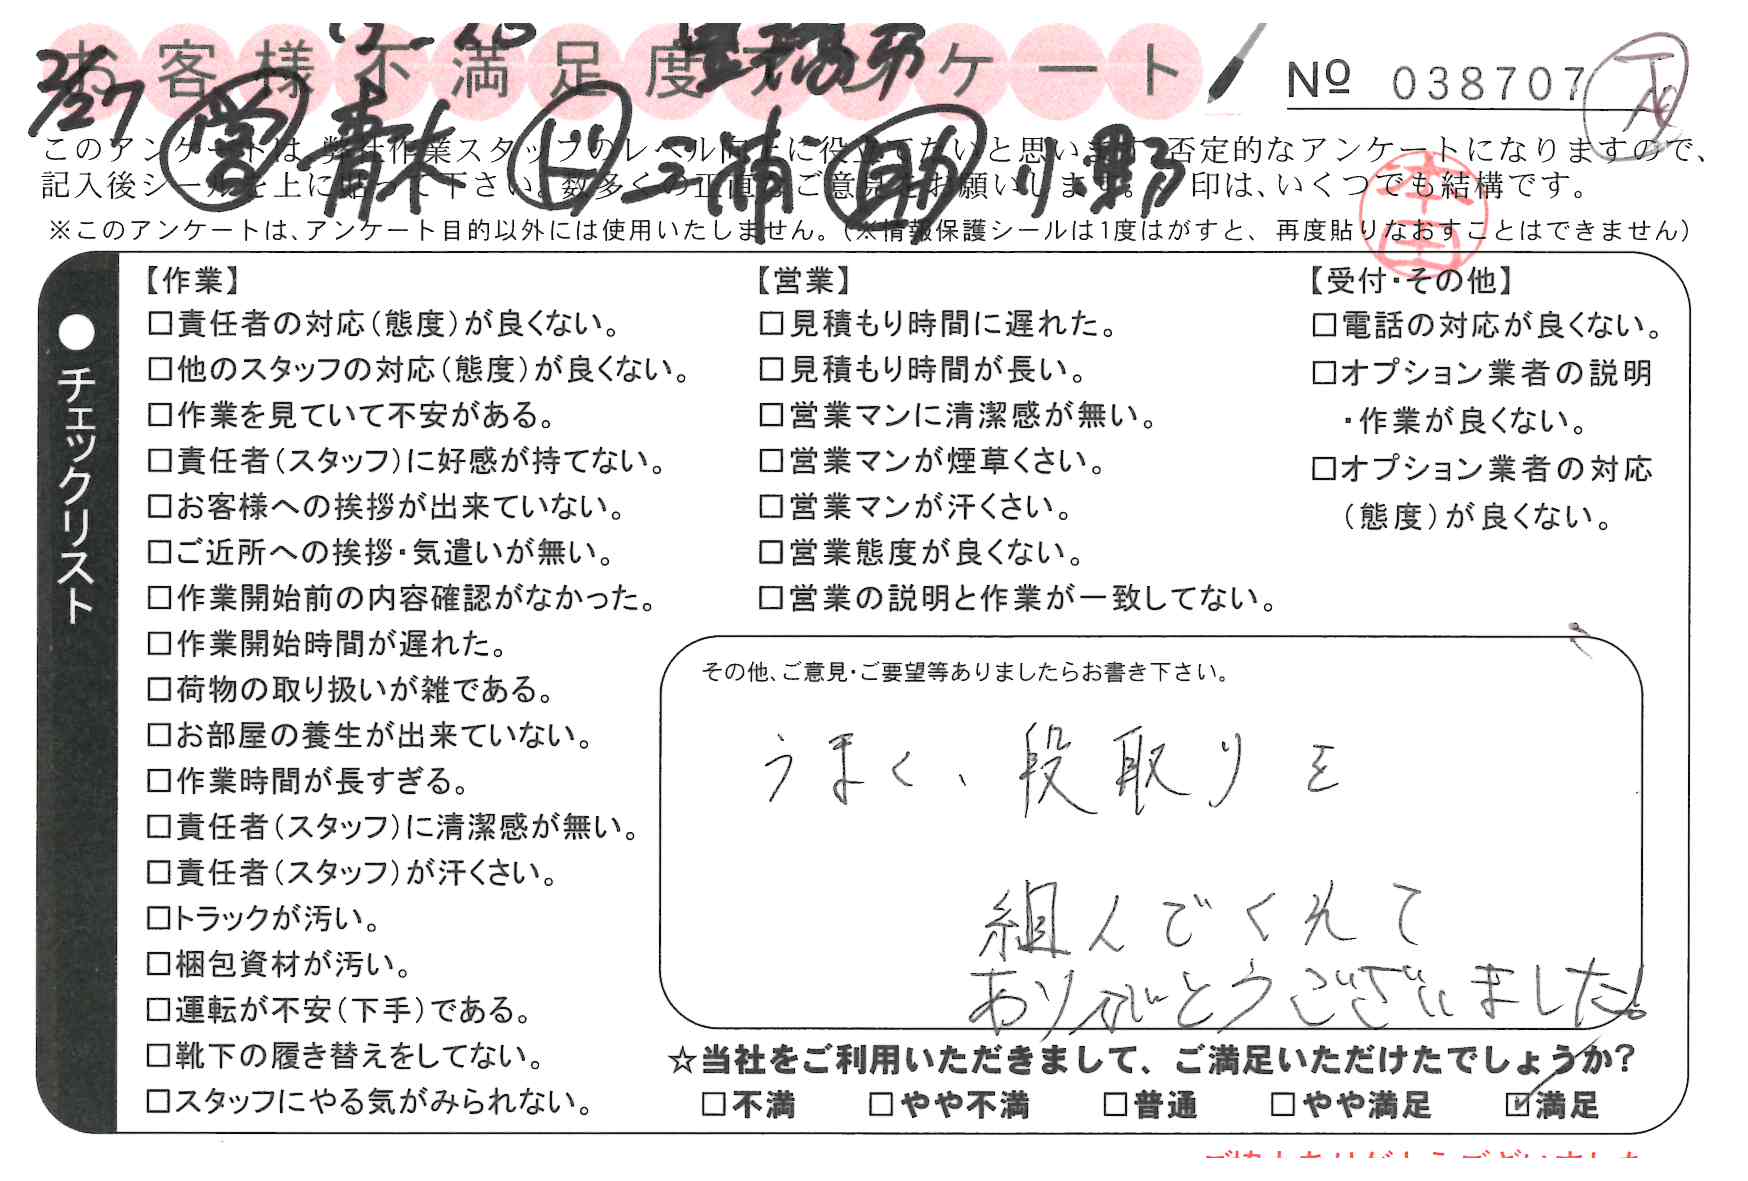 お客様不満足度アンケート
Nº 038707
2/27 営 青木 ド 三浦 助 小野
このアンケートは、弊社作業スタッフのレベル向上に役立てたいと思います。否定的なアンケートになりますので、
記入後シールを上に貼って下さい。数多くの正直なご意見をお願いします。 印は、いくつでも結構です。
※このアンケートは、アンケート目的以外には使用いたしません。(※情報保護シールは1度はがすと、再度貼りなおすことはできません)
本田
●チェックリスト
【作業】
□責任者の対応(態度)が良くない。
□他のスタッフの対応(態度)が良くない。
□作業を見ていて不安がある。
□責任者(スタッフ)に好感が持てない。
□お客様への挨拶が出来ていない。
□ご近所への挨拶・気遣いが無い。
□作業開始前の内容確認がなかった。
□作業開始時間が遅れた。
□荷物の取り扱いが雑である。
□お部屋の養生が出来ていない。
□作業時間が長すぎる。
□責任者(スタッフ)に清潔感が無い。
□責任者(スタッフ)が汗くさい。
□トラックが汚い。
□梱包資材が汚い。
□運転が不安(下手)である。
□靴下の履き替えをしてない。
□スタッフにやる気がみられない。
【営業】
□見積もり時間に遅れた。
□見積もり時間が長い。
□営業マンに清潔感が無い。
□営業マンが煙草くさい。
□営業マンが汗くさい。
□営業態度が良くない。
□営業の説明と作業が一致してない。
【受付・その他】
□電話の対応が良くない。
□オプション業者の説明
・作業が良くない。
□オプション業者の対応
(態度)が良くない。
その他、ご意見・ご要望等ありましたらお書き下さい。
うまく、段取りを
組んでくれて
ありがとうございました。
☆当社をご利用いただきまして、ご満足いただけたでしょうか?
□不満 □やや不満 □普通 □やや満足 ☑満足
ご協力ありがとうございました